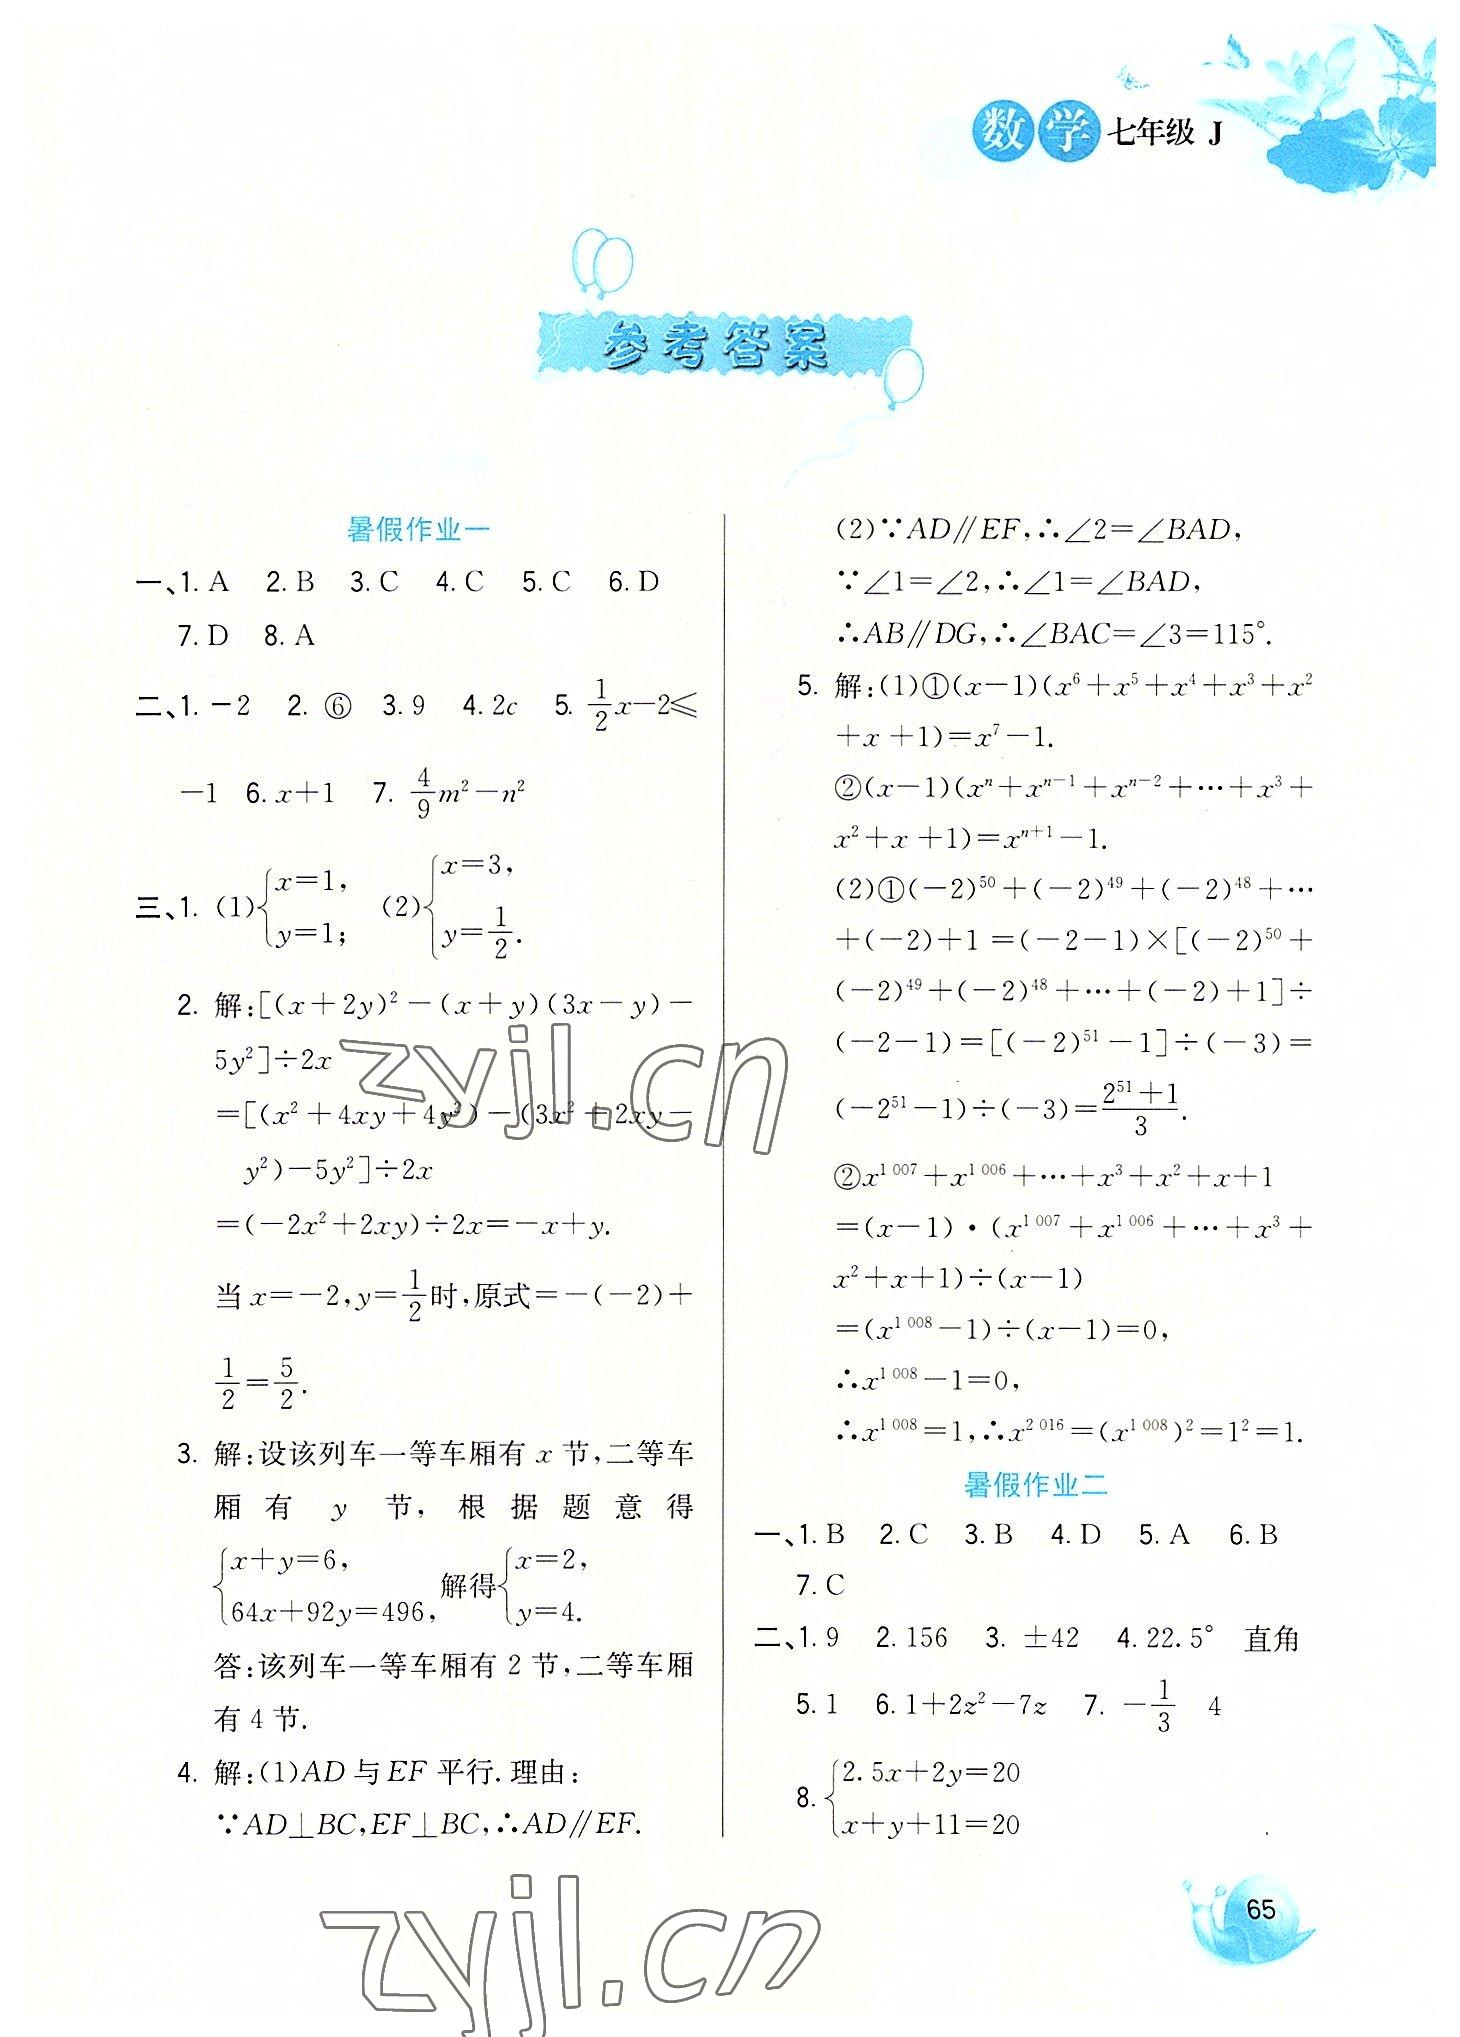 数学 七年级 J
参考答案
暑假作业一
一、1. A 2. B 3. C 4. C 5. C 6. D
7. D 8. A
二、1. －2 2. ⑥ 3. 9 4. 2c 5. 1/2x－2≤
－1 6. x＋1 7. 4/9m²－n²
三、1. (1){x＝1, y＝1; (2){x＝3, y＝1/2.
2. 解:[(x＋2y)²－(x＋y)(3x－y)－
5y²]÷2x
＝[(x²＋4xy＋4y²)－(3x²＋2xy－
y²)－5y²]÷2x
＝(－2x²＋2xy)÷2x＝－x＋y.
当 x＝－2,y＝1/2时,原式＝－(－2)＋
1/2＝5/2.
3. 解:设该列车一等车厢有 x 节,二等车
厢有 y 节,根据题意得
{x＋y＝6, 64x＋92y＝496, 解得{x＝2, y＝4.
答:该列车一等车厢有 2 节,二等车厢
有 4 节.
4. 解:(1)AD 与 EF 平行.理由:
∵AD⊥BC,EF⊥BC,∴AD∥EF.
(2)∵AD∥EF,∴∠2＝∠BAD,
∵∠1＝∠2,∴∠1＝∠BAD,
∴AB∥DG,∴∠BAC＝∠3＝115°.
5. 解:(1)①(x－1)(x⁶＋x⁵＋x⁴＋x³＋x²
＋x＋1)＝x⁷－1.
②(x－1)(xⁿ＋xⁿ⁻¹＋xⁿ⁻²＋…＋x³＋
x²＋x＋1)＝xⁿ⁺¹－1.
(2)①(－2)⁵⁰＋(－2)⁴⁹＋(－2)⁴⁸＋…
＋(－2)＋1＝(－2－1)×[(－2)⁵⁰＋
(－2)⁴⁹＋(－2)⁴⁸＋…＋(－2)＋1]÷
(－2－1)＝[(－2)⁵¹－1]÷(－3)＝
(－2⁵¹－1)÷(－3)＝(2⁵¹＋1)/3.
②x¹ ⁰⁰⁷＋x¹ ⁰⁰⁶＋…＋x³＋x²＋x＋1
＝(x－1)·(x¹ ⁰⁰⁷＋x¹ ⁰⁰⁶＋…＋x³＋
x²＋x＋1)÷(x－1)
＝(x¹ ⁰⁰⁸－1)÷(x－1)＝0,
∴x¹ ⁰⁰⁸－1＝0,
∴x¹ ⁰⁰⁸＝1,∴x² ⁰¹⁶＝(x¹ ⁰⁰⁸)²＝1²＝1.
暑假作业二
一、1. B 2. C 3. B 4. D 5. A 6. B
7. C
二、1. 9 2. 156 3. ±42 4. 22.5° 直角
5. 1 6. 1＋2z²－7z 7. －1/3 4
8. {2.5x＋2y＝20 x＋y＋11＝20
65
zyjl.cn
zyjl.cn